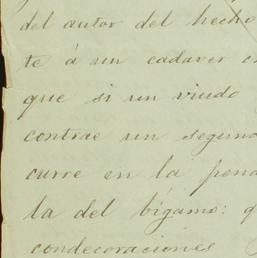 del autor del hecho
te á un cadaver
que si un viudo
contrae un segund
curre en la pena
ta del bígamo: q
condecoraciones